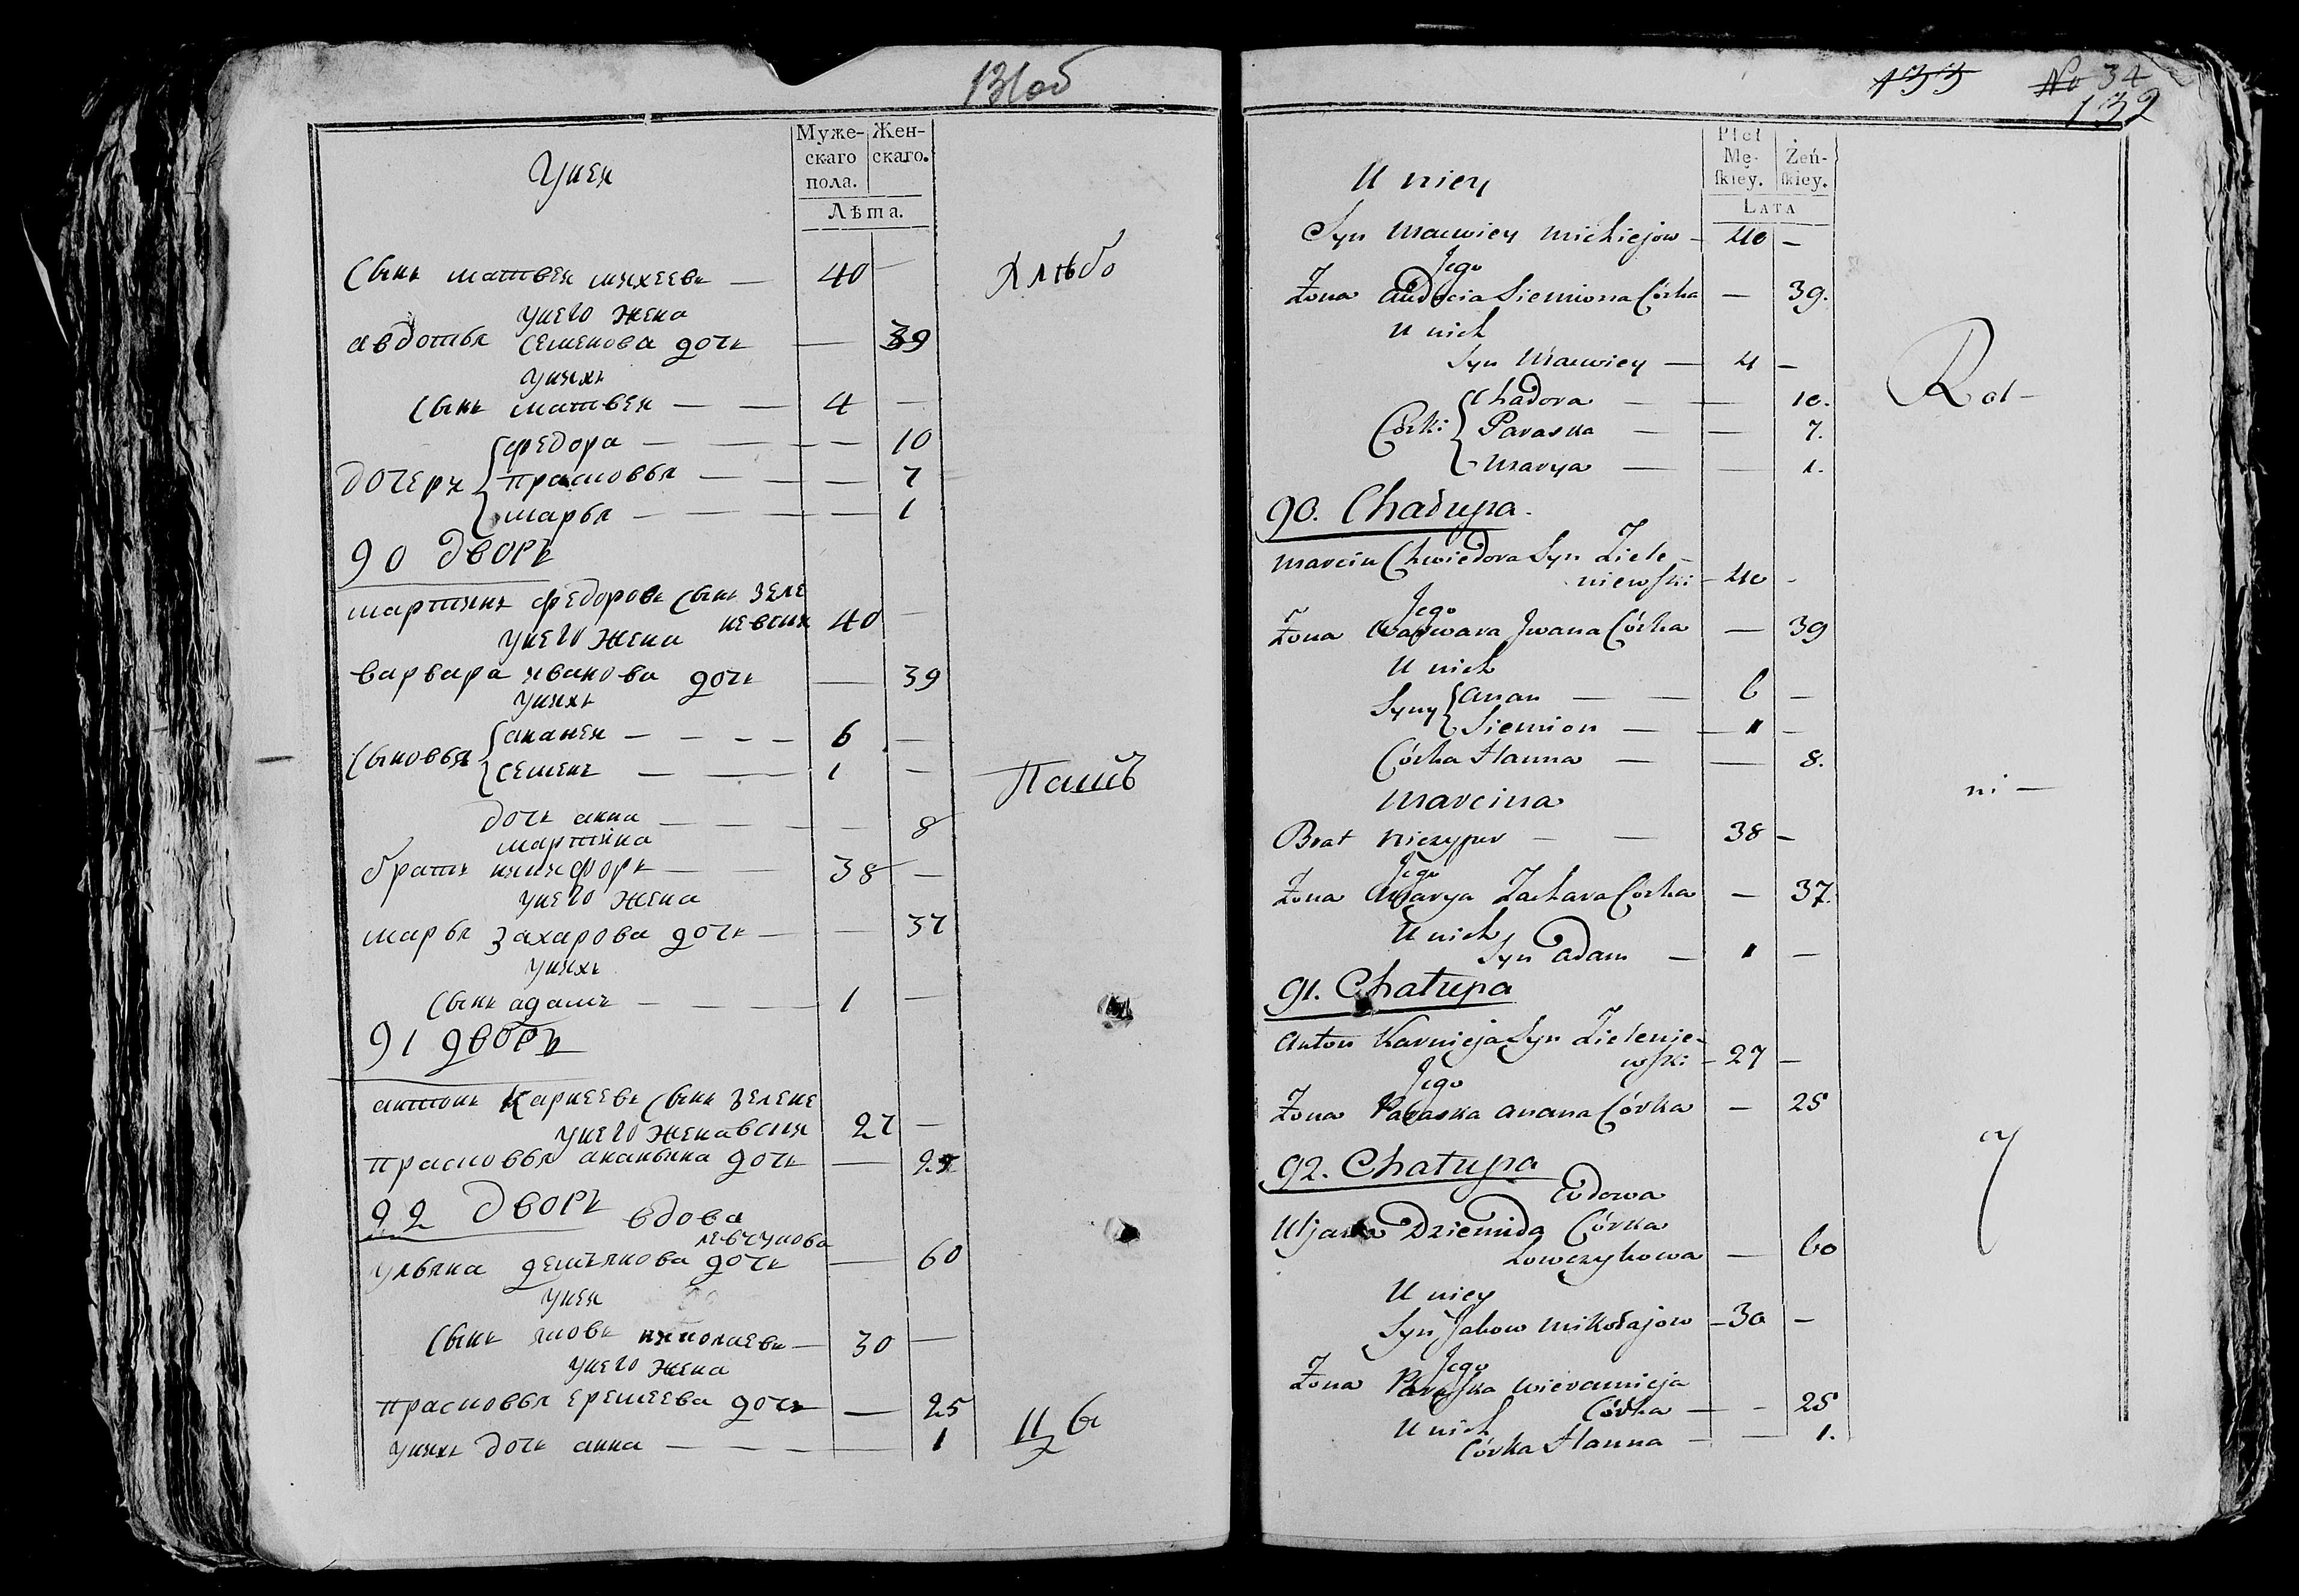 131 об
Унея
Муже-
скаго
пола.
Жен-
скаго.
Лѣта.
Сынъ матвей михеевъ — 40 —
Хлѣбо
унего жена
авдотья семенова дочь — 39
унихъ
Сынъ матвей — — 4 —
дочери { федора — — — — 10
прасковья — — — 7
марья — — — — 1
90 дворъ
мартинъ федоровъ сынъ зеле
невский 40 —
унего жена
варвара иванова дочь — 39
унихъ
Сыновья { ананей — — — — 6 —
семенъ — — 1 —
Пашъ
дочь анна — — — — 8
мартина
братъ никифоръ — — 38 —
унего жена
марья захарова дочь — — 37
унихъ
Сынъ адамъ — — — 1 —
91 дворъ
антонъ карнеевъ сынъ зелене
вский 27 —
унего жена
прасковья ананьина дочь — 25
92 дворъ
вдова
левчукова
ульяна демьянова дочь — 60
унея
Сынъ яковъ николаевъ — 30 —
унего жена
прасковья еремеева дочь — 25
унихъ дочь анна — — — 1
133
No 34
132
U niey
Płci
Mę-
ſkiey.
Żeń-
ſkiey.
LATA
Syn Maćwiey Michiejow — 40 —
Jego
Żona Audocia Siemiona Córka — 39.
U nich
Syn Maćwiey — 4 —
Rol-
Córki { Chadora — — 10.
Paraska — — 7.
Marya — — 1.
90. Chałupa.
Marcin Chwiedora Syn Ziele-
niewſki — 40 -
Jego
Żona Warwara Jwana Córka — 39
U nich
Syny { Anan — — 6 —
Siemion — — 1 —
Córka Hanna — — 8.
ni —
Marcina
Brat Niczypur — — 38 —
Jego
Żona Marya Zachara Córka — 37.
U nich
Syn Adam — 1 —
91. Chałupa
Anton Karnieja Syn Zielenie-
wſki — 27 —
Jego
Żona Paraska Anana Córka — 25
92. Chałupa
Wdowa
Uljana Dziemida Córka
Lowczykowa — 60
U niey
Syn Jakow Mikołajow — 30 —
Jego
Żona Paraſka Wieramieja
Córka — - 25
U nich
Córka Hanna — — 1.